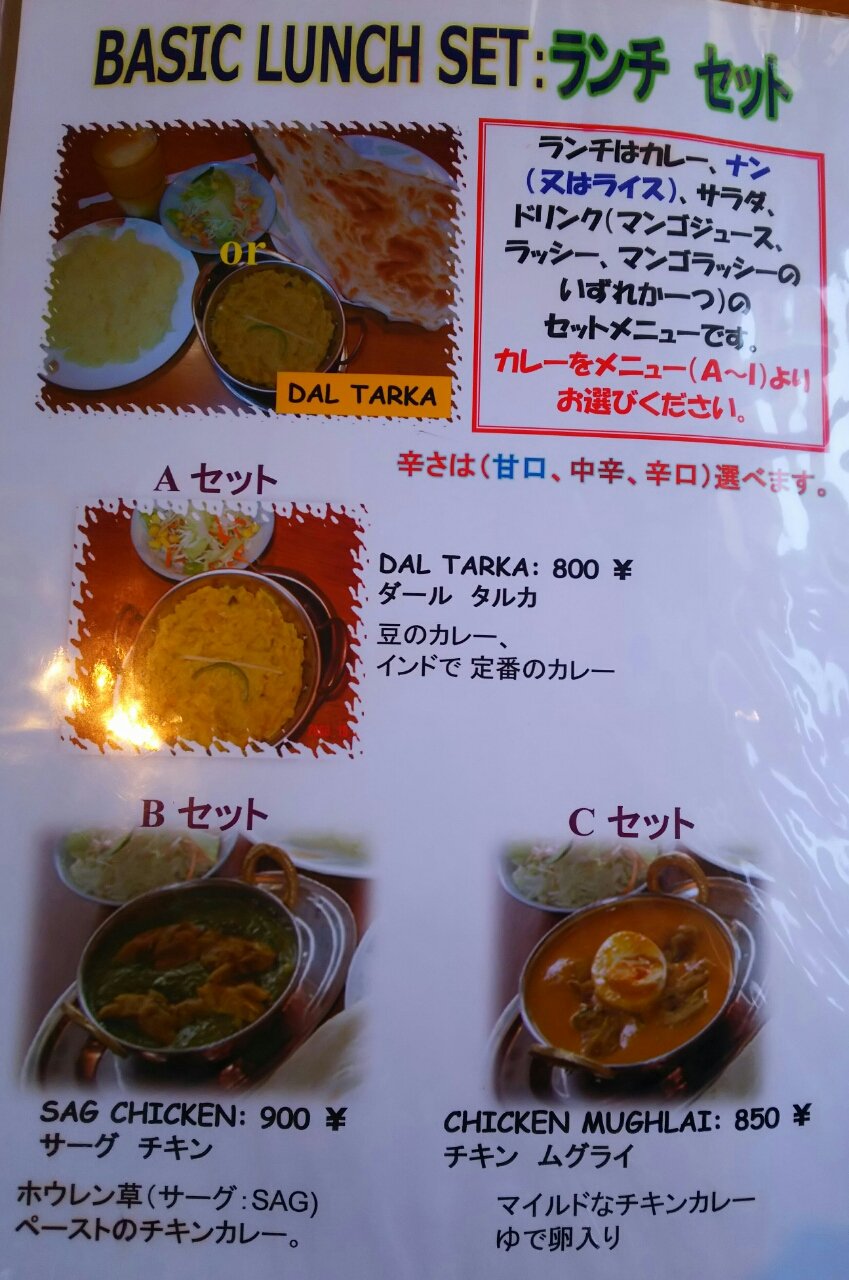 BASIC LUNCH SET:ランチ セット
or
DAL TARKA
ランチはカレー、ナン
(又はライス)、サラダ、
ドリンク(マンゴジュース、
ラッシー、マンゴラッシーの
いずれか一つ)の
セットメニューです。
カレーをメニュー(A～I)より
お選びください。
辛さは(甘口、中辛、辛口)選べます。
A セット
DAL TARKA: 800 ¥
ダール タルカ
豆のカレー、
インドで 定番のカレー
B セット
SAG CHICKEN: 900 ¥
サーグ チキン
ホウレン草(サーグ:SAG)
ペーストのチキンカレー。
C セット
CHICKEN MUGHLAI: 850 ¥
チキン ムグライ
マイルドなチキンカレー
ゆで卵入り